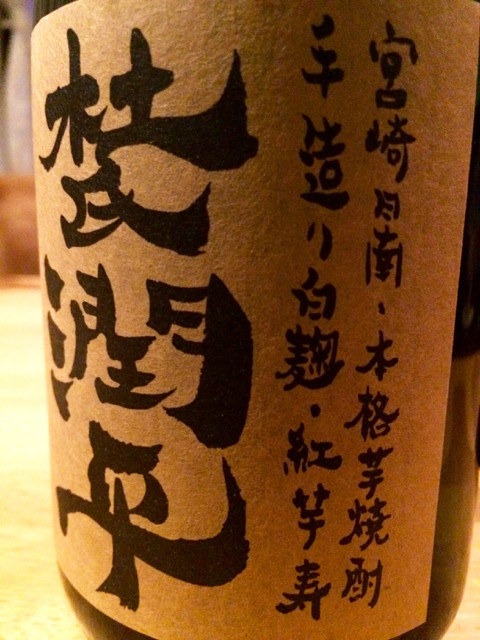 宮崎日南、本格芋焼酎
手造り白麹・紅芋寿
杜氏潤平